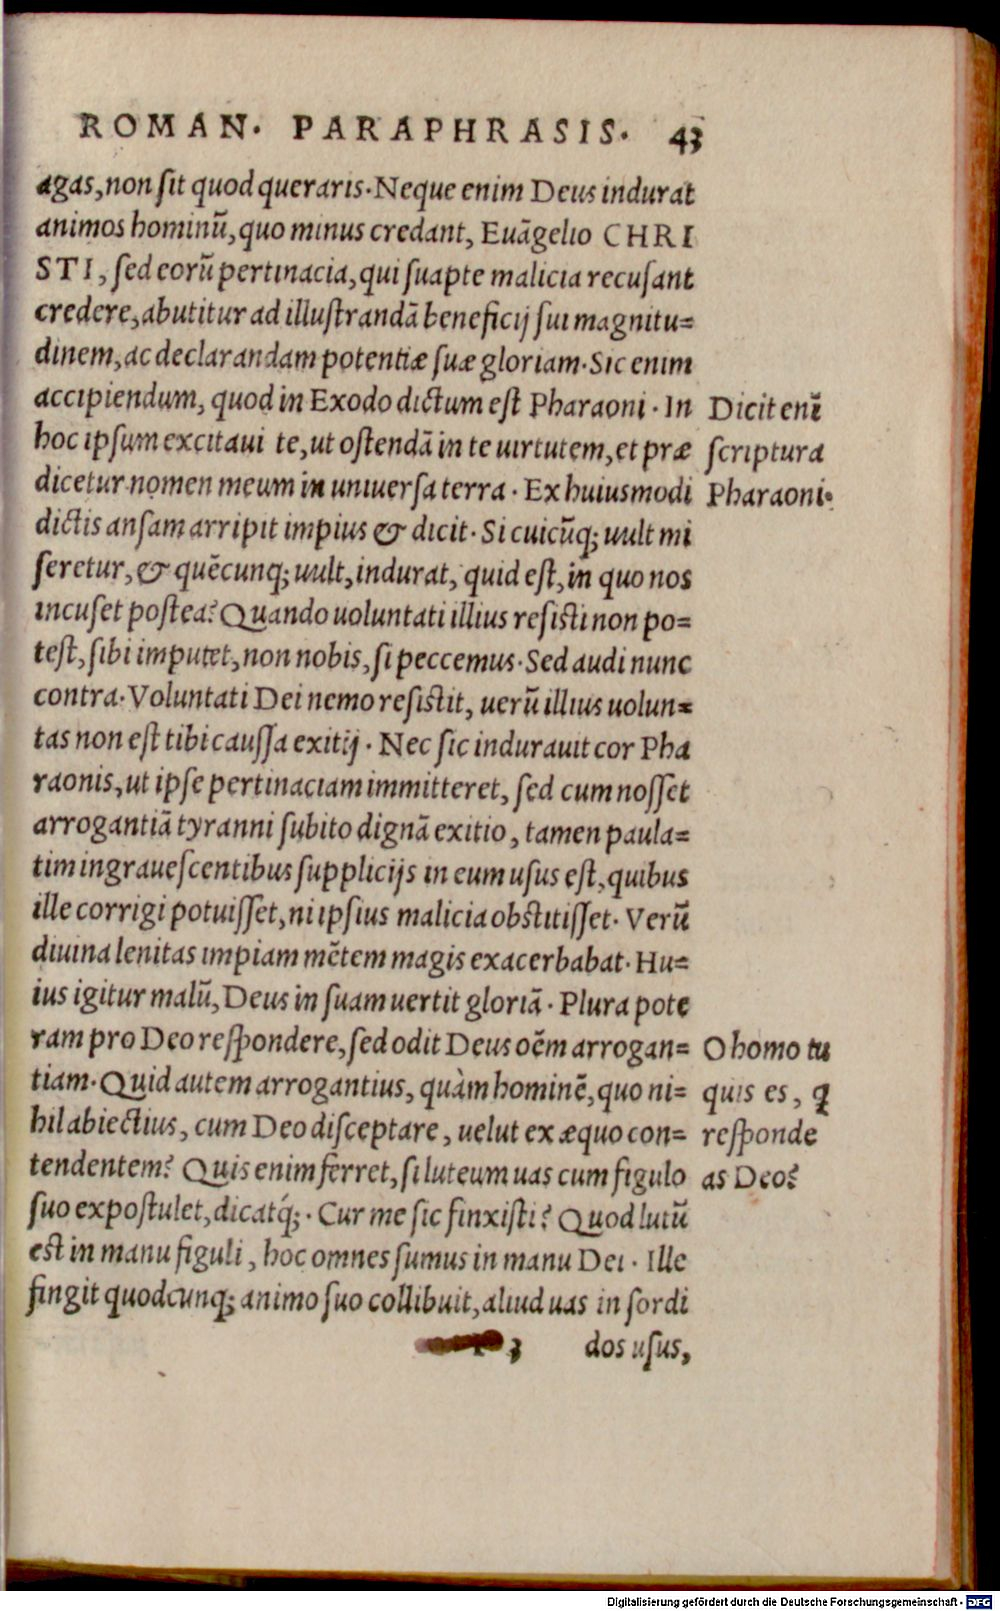 ROMAN. PARAPHRASIS. 43
agas, non sit quod queraris. Neque enim Deus indurat
animos hominũ, quo minus credant, Euãgelio CHRI
STI, sed eorũ pertinacia, qui suapte malicia recusant
credere, abutitur ad illustrandã beneficij sui magnitu=
dinem, ac declarandam potentiæ suæ gloriam. Sic enim
accipiendum, quod in Exodo dictum est Pharaoni. In
hoc ipsum excitaui te, ut ostendã in te uirtutem, et præ
dicetur nomen meum in uniuersa terra. Ex huiusmodi
dictis ansam arripit impius & dicit. Si cuicũq; uult mi
seretur, & quẽcunq; uult, indurat, quid est, in quo nos
incuset postea? Quando uoluntati illius resisti non po=
test, sibi imputet, non nobis, si peccemus. Sed audi nunc
contra. Voluntati Dei nemo resistit, uerũ illius uolun=
tas non est tibi caussa exitij. Nec sic indurauit cor Pha
raonis, ut ipse pertinaciam immitteret, sed cum nosset
arrogantiã tyranni subito dignã exitio, tamen paula=
tim ingrauescentibus supplicijs in eum usus est, quibus
ille corrigi potuisset, ni ipsius malicia obstitisset. Verũ
diuina lenitas impiam mẽtem magis exacerbabat. Hu=
ius igitur malũ, Deus in suam uertit gloriã. Plura pote
ram pro Deo respondere, sed odit Deus oẽm arrogan=
tiam. Quid autem arrogantius, quàm hominẽ, quo ni=
hil abiectius, cum Deo disceptare, uelut ex æquo con=
tendentem? Quis enim ferret, si luteum uas cum figulo
suo expostulet, dicatq́;. Cur me sic finxisti? Quod lutũ
est in manu figuli, hoc omnes sumus in manu Dei. Ille
fingit quodcunq; animo suo collibuit, aliud uas in sordi
3 dos usus,
Dicit enĩ
scriptura
Pharaoni.
O homo tu
quis es, q̃
responde
as Deo?
Digitalisierung gefördert durch die Deutsche Forschungsgemeinschaft - DFG